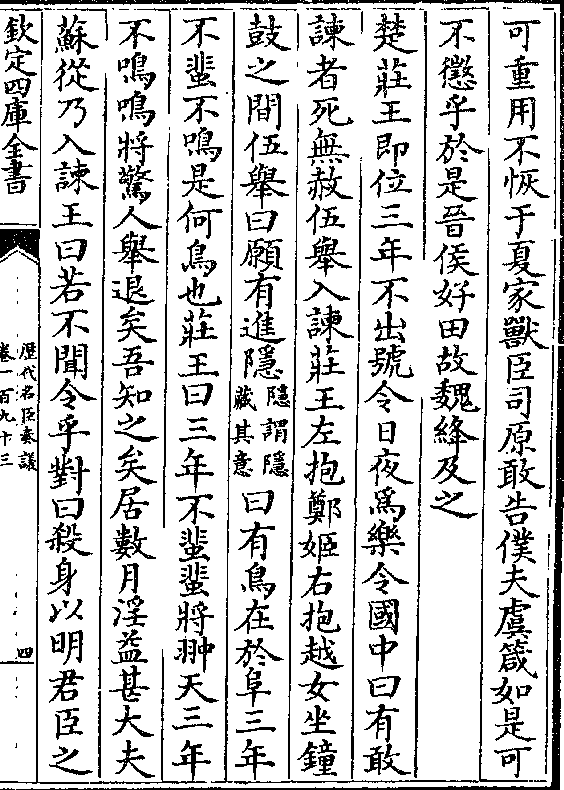 可重用不恢于夏家獸臣司原敢告僕夫虞箴如是可
不懲乎於是晉侯好田故魏絳及之
楚莊王即位三年不出號令日夜爲樂令國中曰有敢
諫者死無赦伍舉入諫莊王左抱鄭姬右抱越女坐鐘
鼓之間伍舉曰願有進隱隱謂隱藏其意曰有鳥在於阜三年
不蜚不鳴是何鳥也莊王曰三年不蜚蜚將翀天三年
不鳴鳴將驚人舉退矣吾知之矣居數月淫益甚大夫
蘇從乃入諫王曰若不聞令乎對曰殺身以明君臣之
欽定四庫全書
歷代名臣奏議
卷一百九十三
四